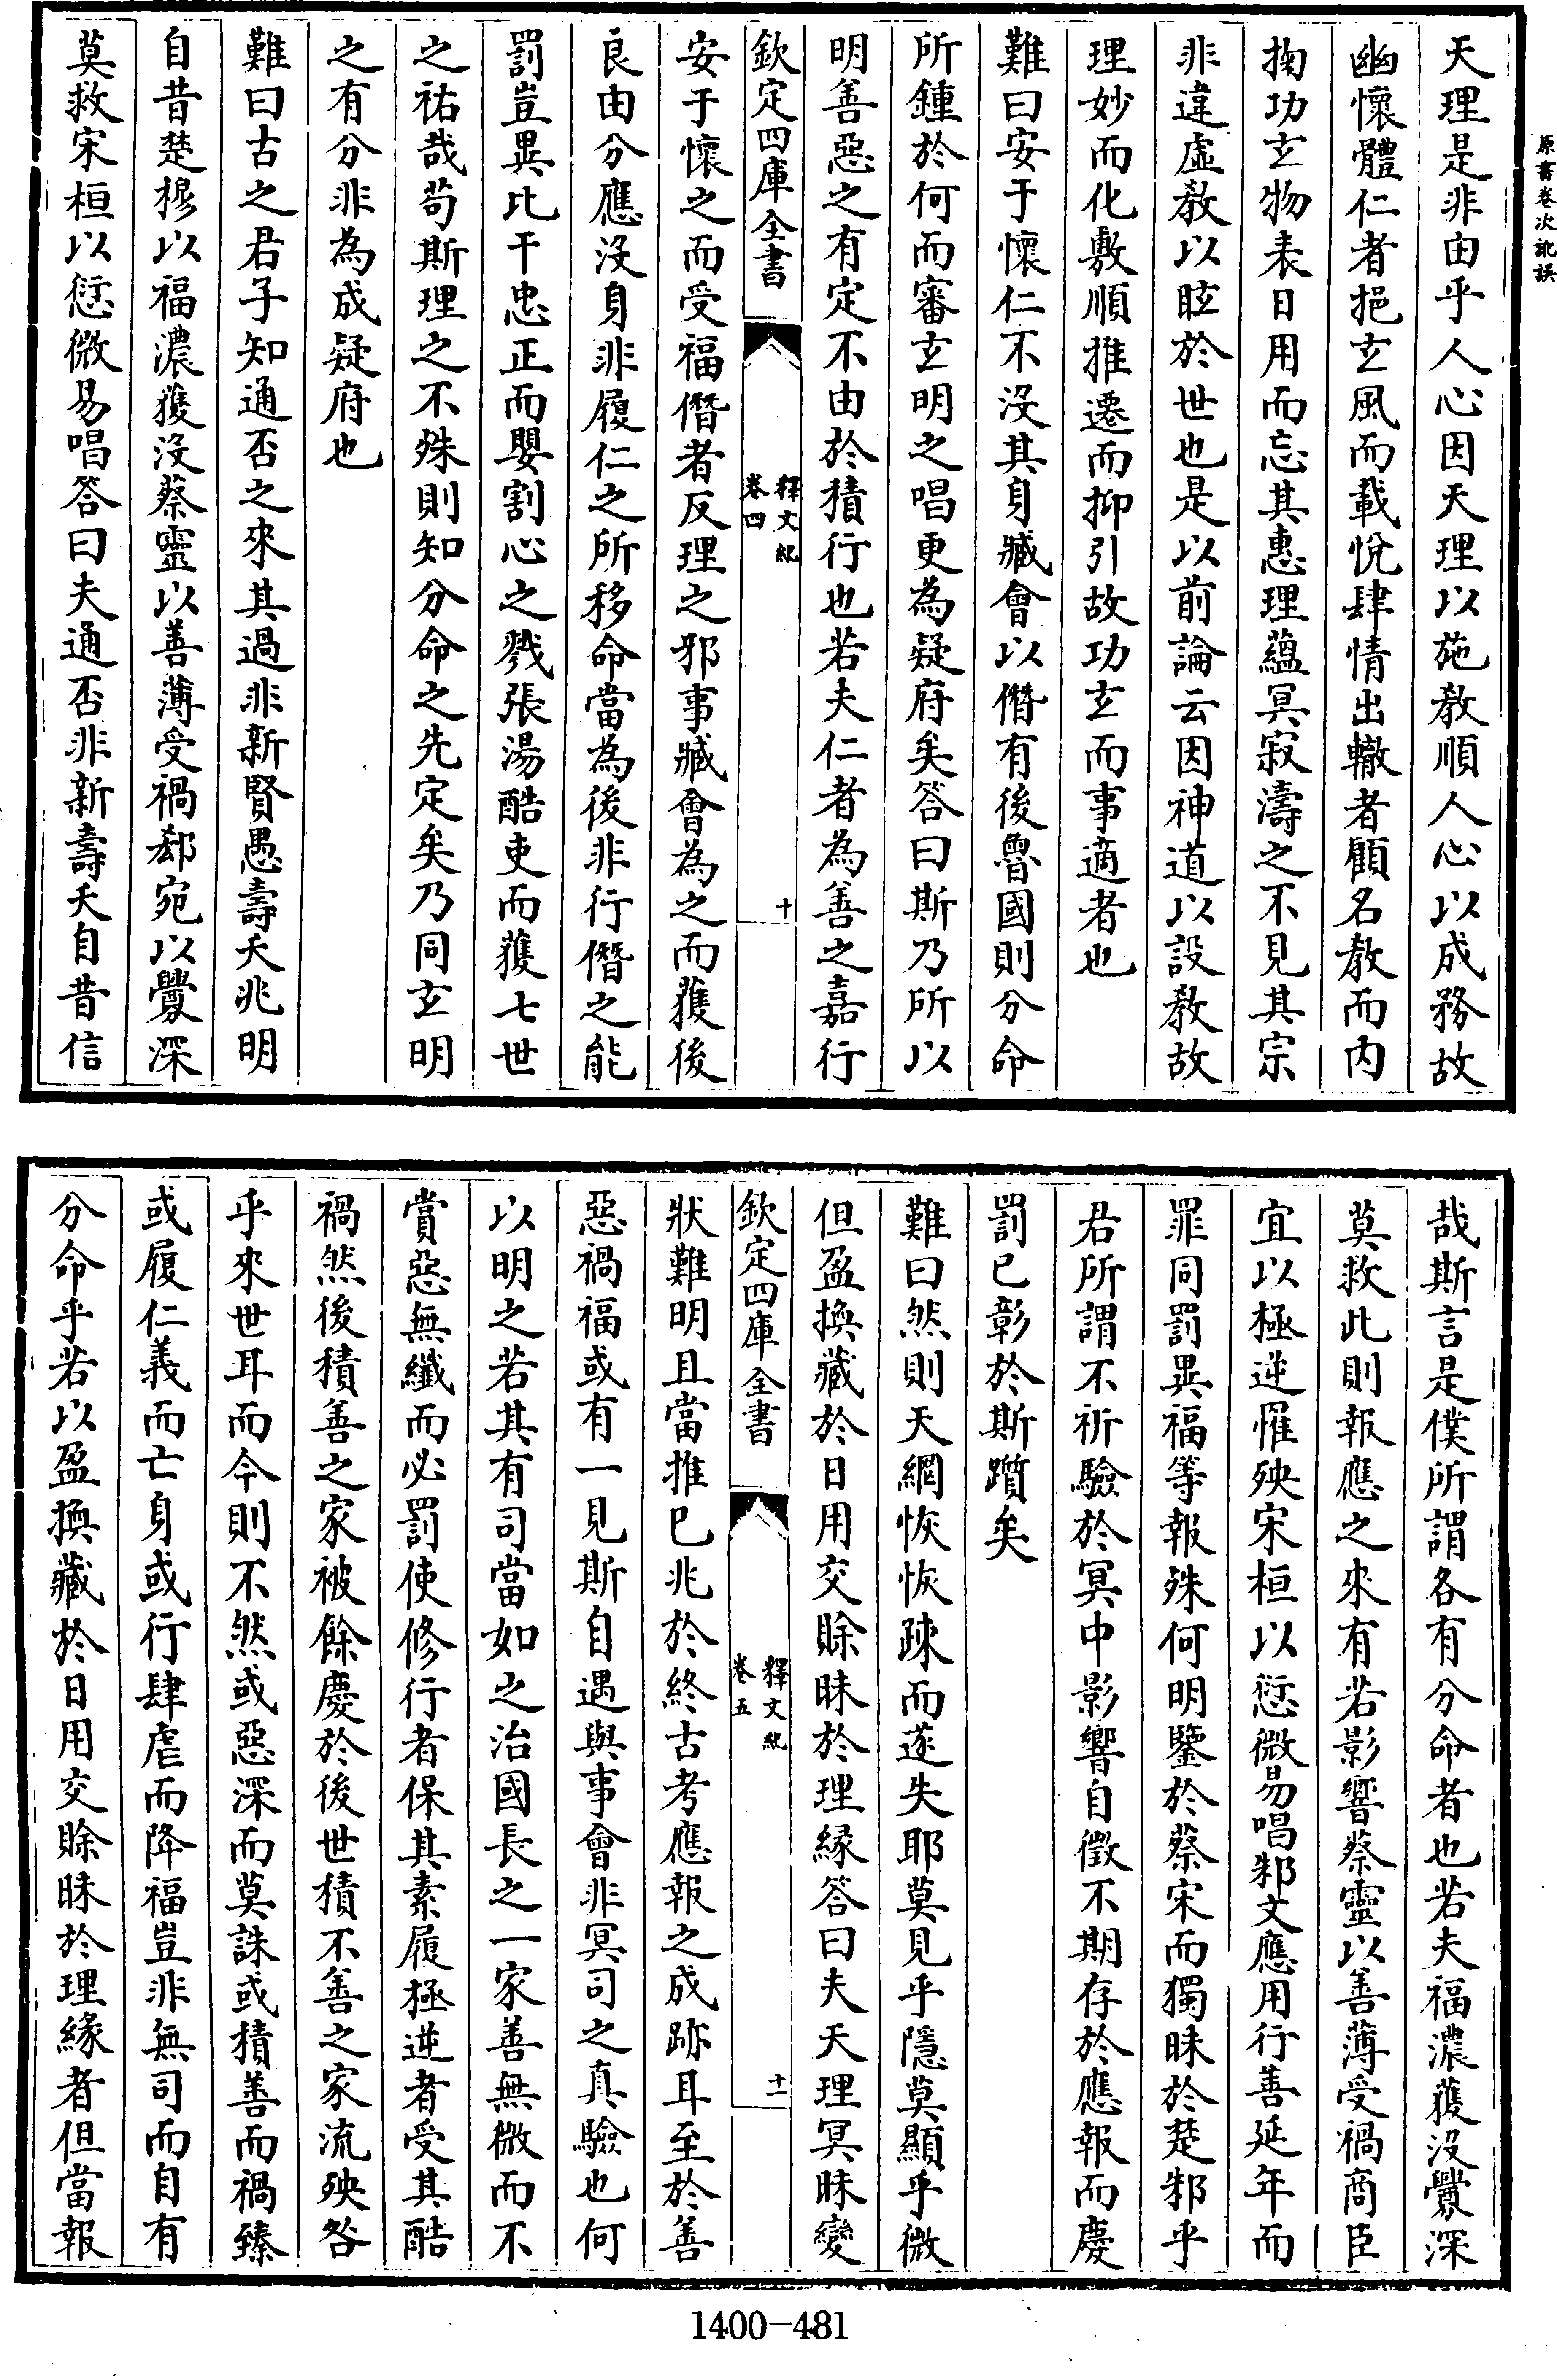 原書卷次訛誤
天理是非由乎人心因天理以施教順人心以成務故
幽懷體仁者挹玄風而載悅肆情出轍者顧名教而内
掬功玄物表日用而忘其惠理蘊冥寂濤之不見其宗
非違虛教以眩於世也是以前論云因神道以設教故
理妙而化敷順推遷而抑引故功玄而事適者也
難曰安于懷仁不没其身臧會以僭有後魯國則分命
所鍾於何而審玄明之唱更為疑府矣答曰斯乃所以
明善惡之有定不由於積行也若夫仁者為善之嘉行
欽定四庫全書
釋文紀
卷四
十
安于懷之而受福僭者反理之邪事臧會為之而獲後
良由分應没身非履仁之所移命當為後非行僭之能
罰豈異比干忠正而嬰割心之戮張湯酷吏而獲七世
之祐哉苟斯理之不殊則知分命之先定矣乃同玄明
之有分非為成疑府也
難曰古之君子知通否之來其過非新賢愚壽夭兆明
自昔楚穆以福濃獲没蔡靈以善薄受禍郄宛以釁深
莫救宋桓以愆微易唱答曰夫通否非新壽夭自昔信
哉斯言是僕所謂各有分命者也若夫福濃獲没釁深
莫救此則報應之來有若影響蔡靈以善薄受禍商臣
宜以極逆罹殃宋桓以愆微易唱邾文應用行善延年而
罪同罰異福等報殊何明鑒於蔡宋而獨昧於楚邾乎
君所謂不祈驗於冥中影響自徵不期存於應報而慶
罰已彰於斯躓矣
難曰然則天網恢恢疎而遂失耶莫見乎隱莫顯乎微
但盈換藏於日用交賖昧於理緣答曰夫天理冥昧變
欽定四庫全書
釋文紀
卷五
十一
狀難明且當推已兆於終古考應報之成跡耳至於善
惡禍福或有一見斯自遇與事會非冥司之真驗也何
以明之若其有司當如之治國長之一家善無微而不
賞惡無纖而必罰使修行者保其素履極逆者受其酷
禍然後積善之家被餘慶於後世積不善之家流殃咎
乎來世耳而今則不然或惡深而莫誅或積善而禍臻
或履仁義而亡身或行肆虐而降福豈非無司而自有
分命乎若以盈換藏於日用交賖昧於理緣者但當報
1400-481